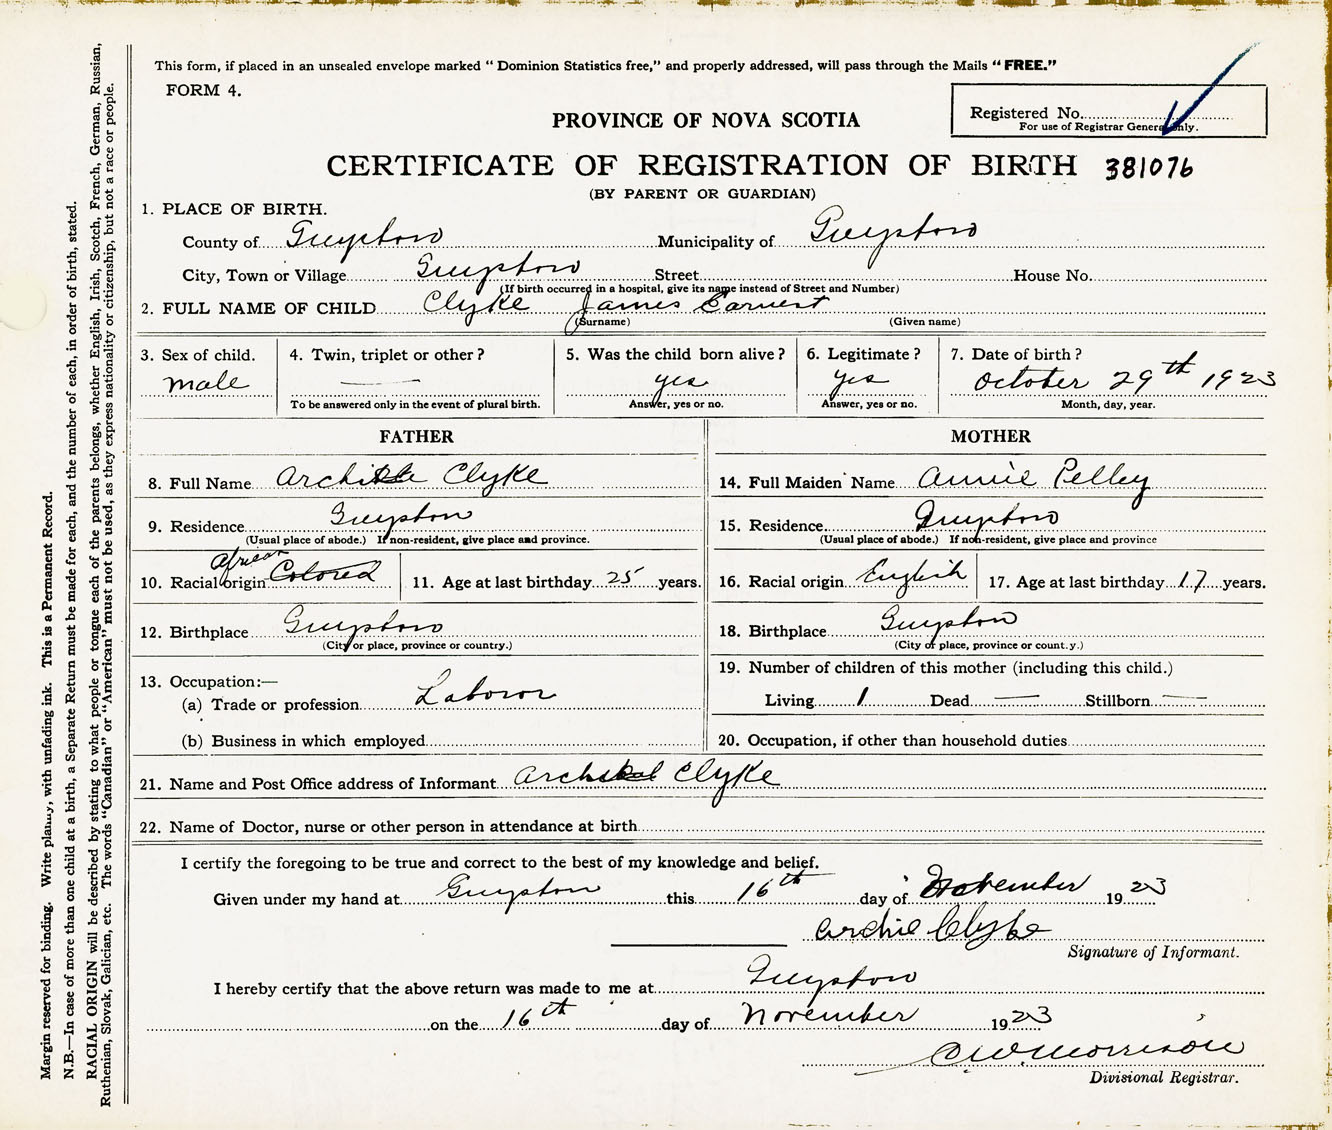 This form, if placed in an unsealed envelope marked “ Dominion Statistics free,” and properly addressed, will pass through the Mails “ FREE.”
FORM 4.
Registered No.
For use of Registrar General only.
PROVINCE OF NOVA SCOTIA
CERTIFICATE OF REGISTRATION OF BIRTH 381076
(BY PARENT OR GUARDIAN)
1. PLACE OF BIRTH.
County of Guysboro Municipality of Guysboro
City, Town or Village Guysboro Street House No.
(If birth occurred in a hospital, give its name instead of Street and Number)
2. FULL NAME OF CHILD Clyke James Earnest
(Surname) (Given name)
3. Sex of child. 4. Twin, triplet or other ? 5. Was the child born alive ? 6. Legitimate ? 7. Date of birth ?
male yes yes October 29th 1923
To be answered only in the event of plural birth. Answer, yes or no. Answer, yes or no. Month, day, year.
FATHER MOTHER
8. Full Name Clyke 14. Full Maiden Name Annie Pelley
9. Residence Guysboro 15. Residence. Guysboro
(Usual place of abode.) If non-resident, give place and province. (Usual place of abode.) If non-resident, give place and province
African
10. Racial origin Colored 11. Age at last birthday 25 years. 16. Racial origin English 17. Age at last birthday 17 years.
12. Birthplace Guysboro 18. Birthplace Guysboro
(City or place, province or country.) (City or place, province or count.y.)
13. Occupation:— 19. Number of children of this mother (including this child.)
(a) Trade or profession Laboror Living 1 Dead — Stillborn —
(b) Business in which employed 20. Occupation, if other than household duties
21. Name and Post Office address of Informant Clyke
22. Name of Doctor, nurse or other person in attendance at birth
I certify the foregoing to be true and correct to the best of my knowledge and belief.
Given under my hand at Guysboro this 16th day of November 1923
Archie Clyke
Signature of Informant.
I hereby certify that the above return was made to me at Guysboro
on the 16th day of November 1923
C W Morrison
Divisional Registrar.
Margin reserved for binding. Write plainly, with unfading ink. This is a Permanent Record.
N.B.—In case of more than one child at a birth, a Separate Return must be made for each, and the number of each, in order of birth, stated.
RACIAL ORIGIN will be described by stating to what people or tongue each of the parents belongs, whether English, Irish, Scotch, French, German, Russian,
Ruthenian, Slovak, Galician, etc. The words “Canadian” or “American” must not be used, as they express nationality or citizenship, but not a race or people.